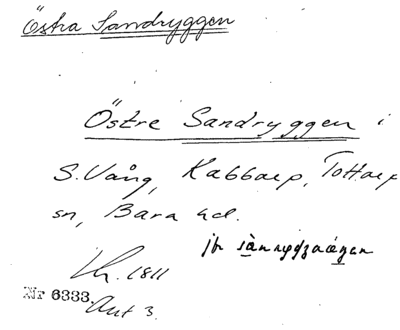 Östra Sandryggen
Östre Sandryggen i
S. Vång, Kabbarp, Tottarp
sn, Bara hd.
Lh. 1811
Nr 6333. Akt 3.